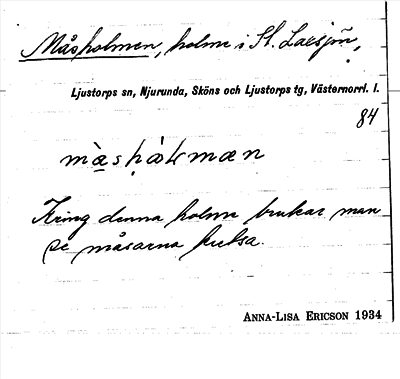 Måsholmen, holme i St. Larsjön,
Ljustorps sn, Njurunda, Sköns och Ljustorps tg, Västernorrl. l.
84
Kring denna holme brukar man
se måsarna kretsa.
ANNA-LISA ERICSON 1934